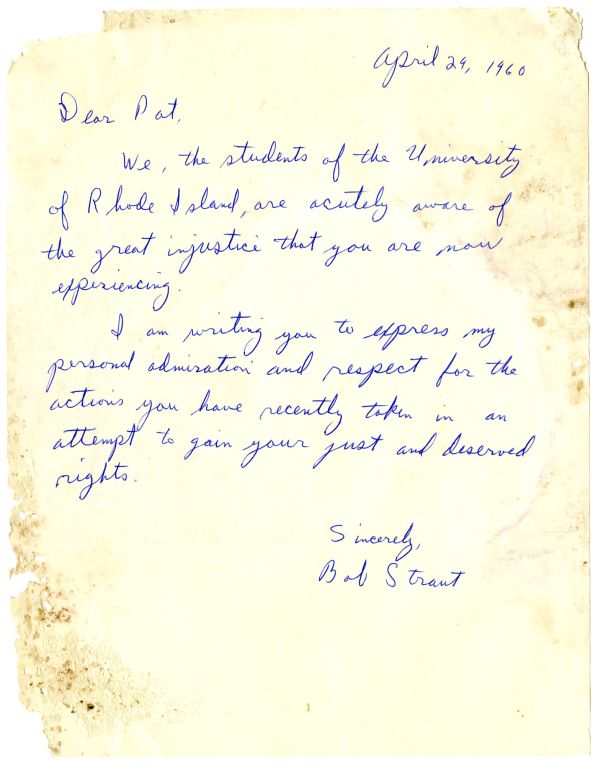 April 29, 1960
Dear Pat,
We, the students of the University
of Rhode Island, are acutely aware of
the great injustice that you are now
experiencing.
I am writing you to express my
personal admiration and respect for the
actions you have recently taken in an
attempt to gain your just and deserved
rights.
Sincerely,
Bob Straut